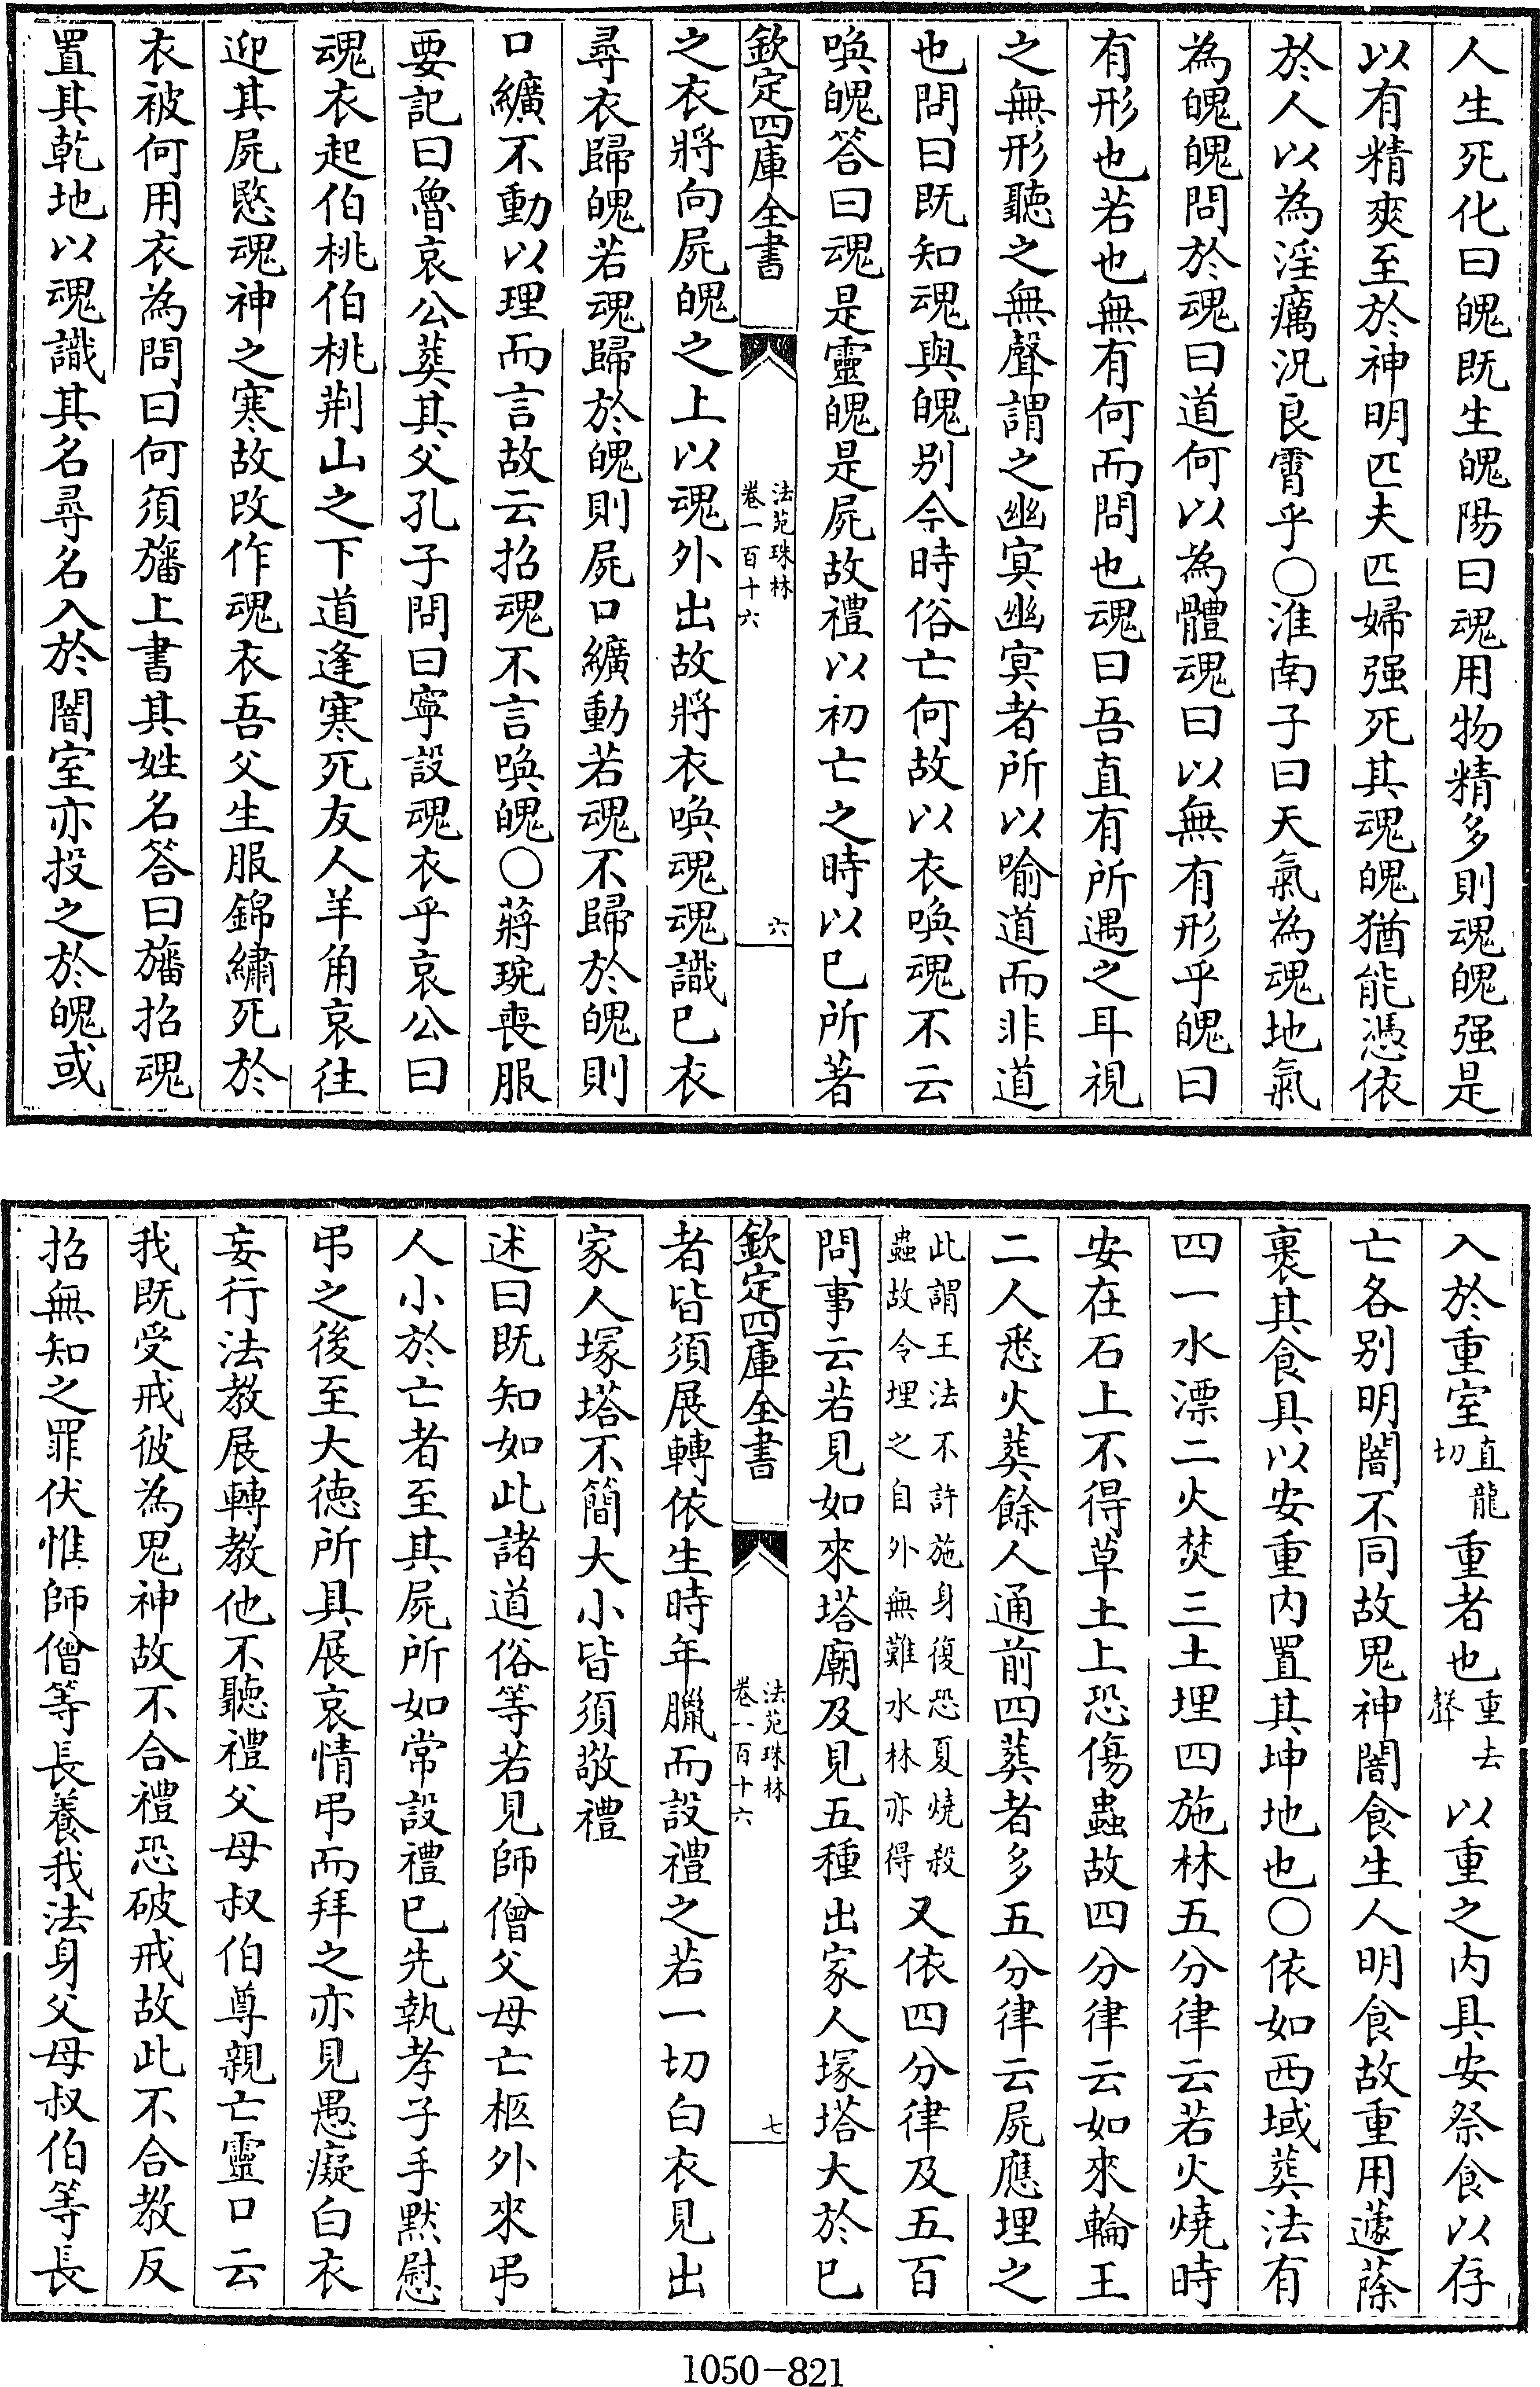 人生死化曰魄既生魄陽曰魂用物精多則魂魄强是
以有精爽至於神明匹夫匹婦强死其魂魄猶能憑依
於人以為淫癘況良霄乎〇淮南子曰天氣為魂地氣
為魄魄問於魂曰道何以為體魂曰以無有形乎魄曰
有形也若也無有何而問也魂曰吾直有所遇之耳視
之無形聽之無聲謂之幽冥幽冥者所以喻道而非道
也問曰既知魂與魄别今時俗亡何故以衣喚魂不云
喚魄答曰魂是靈魄是屍故禮以初亡之時以已所著
欽定四庫全書 法苑珠林 卷一百十六 六
之衣將向屍魄之上以魂外出故將衣喚魂魂識已衣
尋衣歸魄若魂歸於魄則屍口纊動若魂不歸於魄則
口纊不動以理而言故云招魂不言喚魄〇蔣琬喪服
要記曰魯哀公葬其父孔子問曰寧設魂衣乎哀公曰
魂衣起伯桃伯桃荆山之下道逢寒死友人羊角哀往
迎其屍愍魂神之寒故改作魂衣吾父生服錦繡死於
衣被何用衣為問曰何須旛上書其姓名答曰旛招魂
置其乾地以魂識其名尋名入於闇室亦投之於魄或
入於重室直龍切重者也重去聲以重之内具安祭食以存
亡各别明闇不同故鬼神闇食生人明食故重用蘧蒢
裹其食具以安重内置其坤地也〇依如西域葬法有
四一水漂二火焚三土埋四施林五分律云若火燒時
安在石上不得草土上恐傷蟲故四分律云如來輪王
二人悉火葬餘人通前四葬者多五分律云屍應埋之
此謂王法不許施身復恐夏燒殺蟲故令埋之自外無難水林亦得又依四分律及五百
問事云若見如來塔廟及見五種出家人塚塔大於已
欽定四庫全書 法苑珠林 卷一百十六 七
者皆須展轉依生時年臘而設禮之若一切白衣見出
家人塚塔不簡大小皆須敬禮
述曰既知如此諸道俗等若見師僧父母亡柩外來弔
人小於亡者至其屍所如常設禮已先執孝子手黙慰
弔之後至大德所具展哀情弔而拜之亦見愚癡白衣
妄行法教展轉教他不聽禮父母叔伯尊親亡靈口云
我既受戒彼為鬼神故不合禮恐破戒故此不合教反
招無知之罪伏惟師僧等長養我法身父母叔伯等長
1050-821